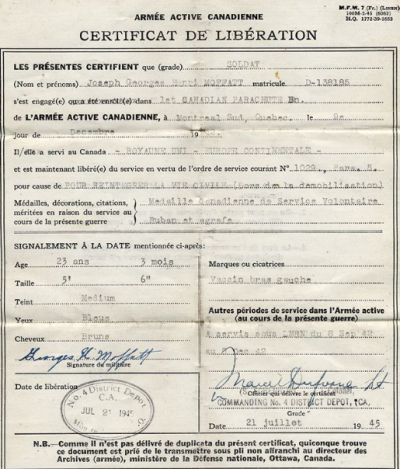 M.F.W. 7 (Fr.)
H.Q. 1772-39-1653
ARMÉE ACTIVE CANADIENNE
CERTIFICAT DE LIBÉRATION
LES PRÉSENTES CERTIFIENT que (grade) SOLDAT
(Nom et prénoms) Joseph Georges Henri MOFFATT matricule D-138185
s'est engagé(e) ou a été enrôlé(e) dans 1st CANADIAN PARACHUTE Bn.
de L'ARMÉE ACTIVE CANADIENNE, à Montreal Sud, Quebec. le
jour de Decembre 19
Il/elle a servi au Canada - ROYAUME UNI - EUROPE CONTINENTALE -
et est maintenant libéré(e) du service en vertu de l'ordre de service courant N° 1029, Para. 5.
pour cause de POUR REINTEGRER LA VIE CIVILE (Lors de la demobilisation)
Médailles, décorations, citations, Medaille Canadienne de Service Volontaire
méritées en raison du service au
cours de la présente guerre Ruban et agrafe
SIGNALEMENT À LA DATE mentionnée ci-après:
Age 23 ans 3 mois
Marques ou cicatrices
Taille 5' 6"
Vaccin bras gauche
Teint Medium
Autres périodes de service dans l'Armée active
(au cours de la présente guerre)
Yeux Bleus
Cheveux Bruns
A servie sous LMRN du 8 Sep 42
au Dec 42
Georges H. Moffatt
Signature du militaire
Date de libération
No. 4 District Depot
C.A.
JUL 21 1945
Officier qui délivre le certificat
COMMANDING No. 4 DISTRICT DEPOT, CA,
Grade
Date 21 juillet 1945
N.B.—Comme il n'est pas délivré de duplicata du présent certificat, quiconque trouve
ce document est prié de le transmettre sous pli non affranchi au directeur des
Archives (armée), ministère de la Défense nationale, Ottawa, Canada.